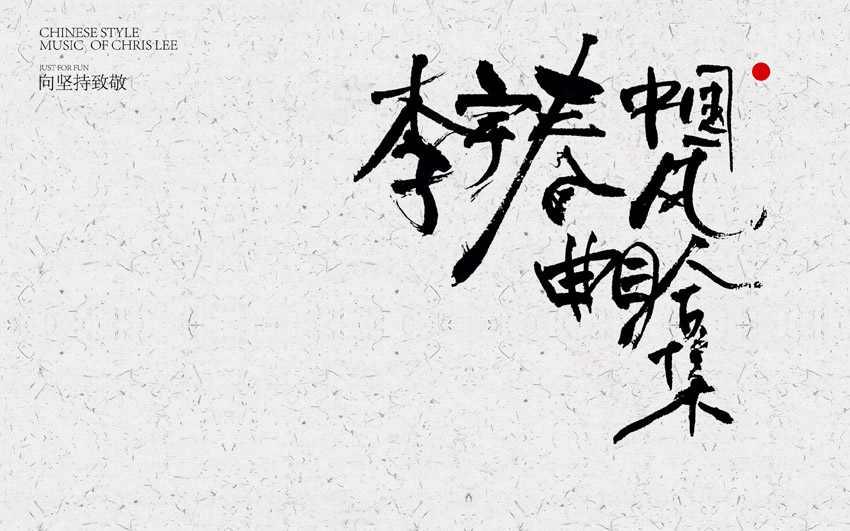 CHINESE STYLE
MUSIC, OF CHRIS LEE
JUST FOR FUN
向坚持致敬
李宇春
中国风
曲目合集